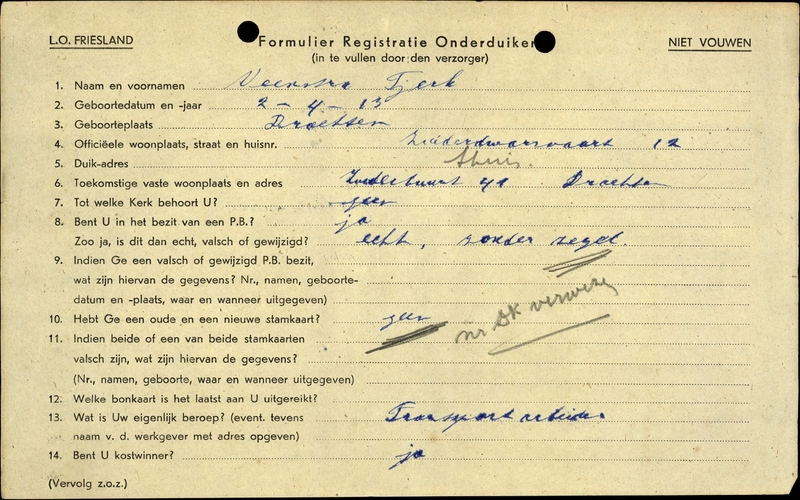 L.O. FRIESLAND
Formulier Registratie Onderduiker
NIET VOUWEN
(in te vullen door den verzorger)
1. Naam en voornamen Veenstra Tjerk
2. Geboortedatum en -jaar 2-4-13
3. Geboorteplaats Drachten
4. Officiëele woonplaats, straat en huisnr. Zuiderdwarsvaart 12
5. Duik-adres thuis.
6. Toekomstige vaste woonplaats en adres 41 Drachten
7. Tot welke Kerk behoort U? geen
8. Bent U in het bezit van een P.B.? ja
Zoo ja, is dit dan echt, valsch of gewijzigd? echt, zonder zegel.
9. Indien Ge een valsch of gewijzigd P.B. bezit,
wat zijn hiervan de gegevens? Nr., namen, geboorte-
datum en -plaats, waar en wanneer uitgegeven)
10. Hebt Ge een oude en een nieuwe stamkaart? geen
nr DK
11. Indien beide of een van beide stamkaarten
valsch zijn, wat zijn hiervan de gegevens?
(Nr., namen, geboorte, waar en wanneer uitgegeven)
12. Welke bonkaart is het laatst aan U uitgereikt?
13. Wat is Uw eigenlijk beroep? (event. tevens Transport arbeider
naam v. d. werkgever met adres opgeven)
14. Bent U kostwinner? ja
(Vervolg z.o.z.)